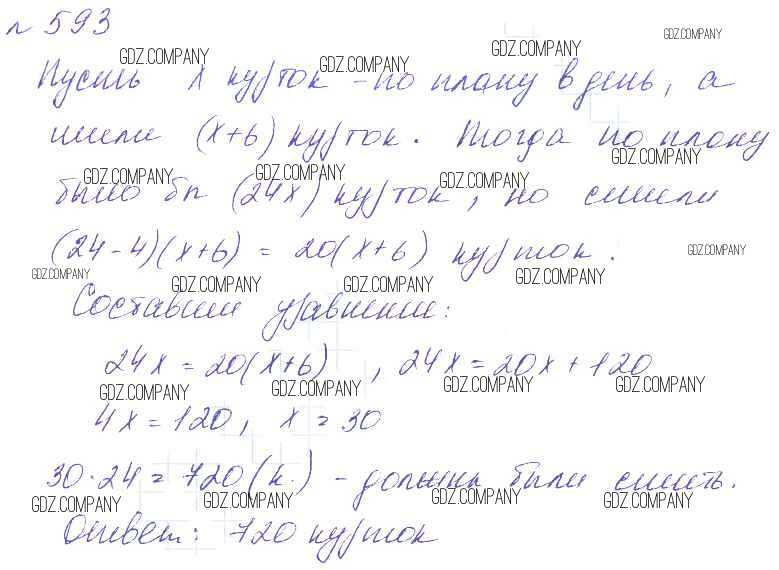 № 593
GDZ.COMPANY GDZ.COMPANY GDZ.COMPANY GDZ.COMPANY
Пусть x курток - по плану в день, а
шили (x+6) курток. Тогда по плану
GDZ.COMPANY GDZ.COMPANY GDZ.COMPANY GDZ.COMPANY
было бы (24x) курток, но сшили
(24-4)(x+6) = 20(x+6) курток.
GDZ.COMPANY GDZ.COMPANY GDZ.COMPANY GDZ.COMPANY GDZ.COMPANY
Составим уравнение:
24x = 20(x+6), 24x = 20x + 120
GDZ.COMPANY GDZ.COMPANY GDZ.COMPANY GDZ.COMPANY
4x = 120, x = 30
30·24 = 720 (к.) - должны были сшить.
GDZ.COMPANY GDZ.COMPANY GDZ.COMPANY GDZ.COMPANY
Ответ: 720 курток